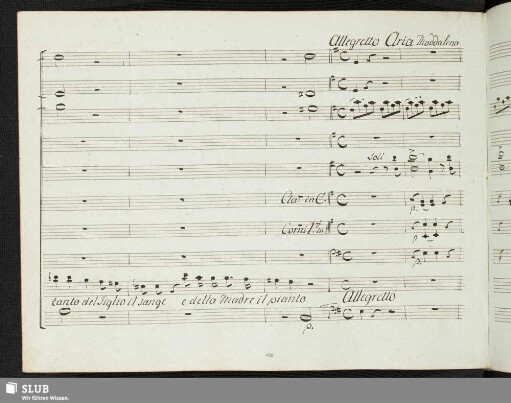 Allegretto Aria Maddalena
Soli
in C.
Corni
p.
p.
p.
canto del figlio il sange e della Madre il pianto.
Allegretto
p.
SLUB
Wir führen Wissen.